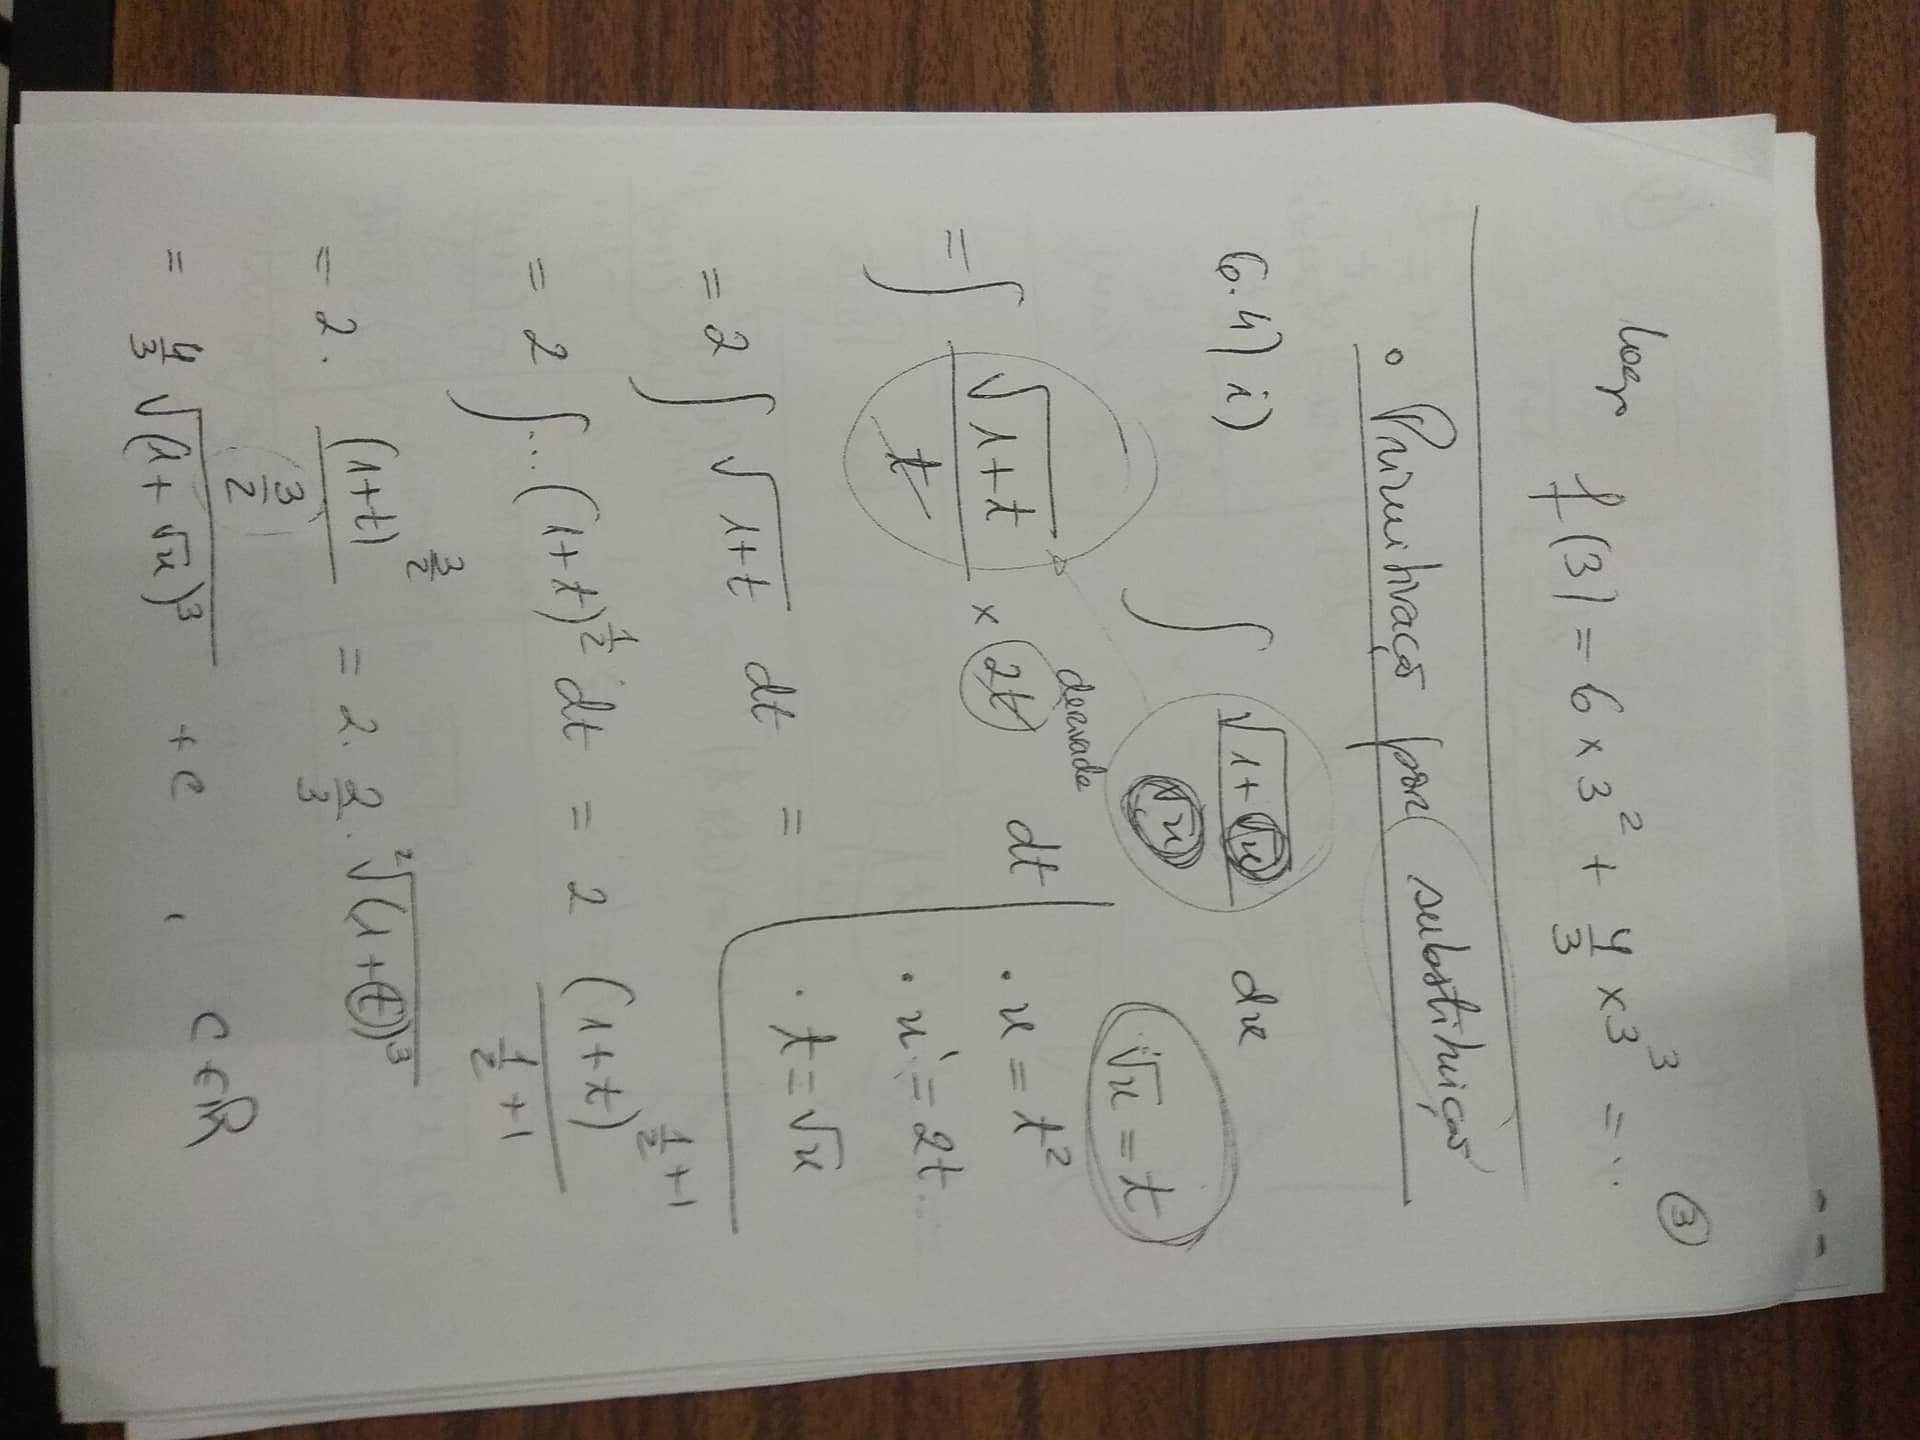 ③
logo f(3) = 6 × 3² + 4/3 × 3³ = ...
• Primitivação por substituição
6.4) i) ∫ √(1+√x) / √x dx
√x = t
= ∫ √(1+t) / t × 2t dt
derivada
• x = t²
• x' = 2t
• t = √x
= 2 ∫ √(1+t) dt =
= 2 ∫ ... (1+t)^(1/2) dt = 2 (1+t)^(1/2 + 1) / (1/2 + 1)
= 2 · (1+t)^(3/2) / (3/2) = 2 · 2/3 · ²√((1+t)³)
= 4/3 √((1+√x)³) + c , c ∈ ℝ